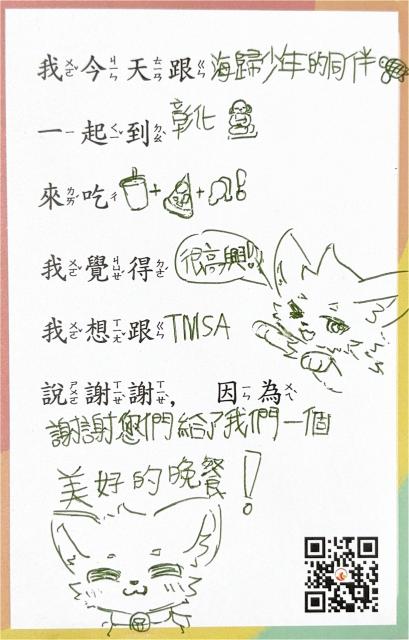 我ㄨㄛˇ今ㄐㄧㄣ天ㄊㄧㄢ跟ㄍㄣ海歸少年的同伴。
一ㄧ起ㄑㄧˇ到ㄉㄠˋ彰化
來ㄌㄞˊ吃ㄔ + +
我ㄨㄛˇ覺ㄐㄩㄝˊ得ㄉㄜˊ很高興!!
我ㄨㄛˇ想ㄒㄧㄤˇ跟ㄍㄣ TMSA
說ㄕㄨㄛ謝ㄒㄧㄝˋ謝ㄒㄧㄝˋ, 因ㄧㄣ為ㄨㄟˋ
謝謝您們給了我們一個
美好的晚餐!